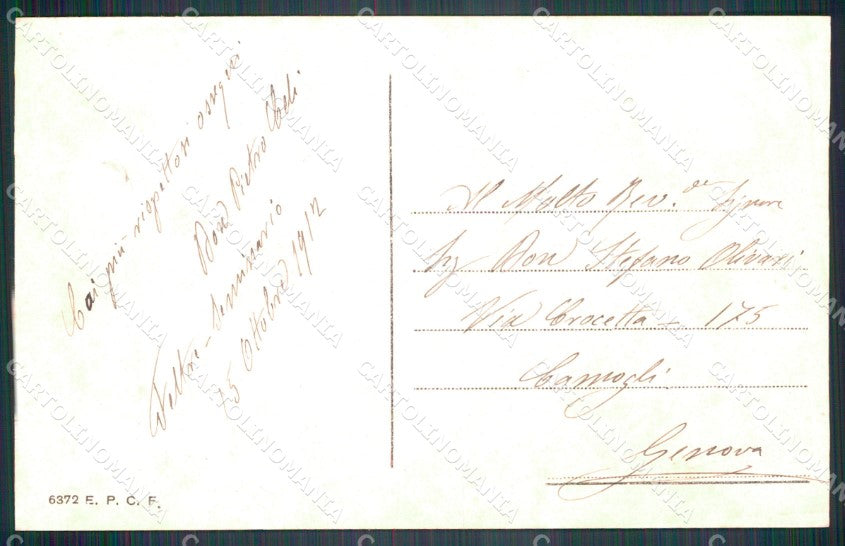 Coi più rispettosi ossequi
Don Pietro
Feltre - Seminario
5 Ottobre 1912
Al Molto Rev.do Signore
Sig Don Stefano Olivari
Via Crocetta - 175
Camogli
Genova
6372 E. P. C. F.
CARTOLINOMANIA